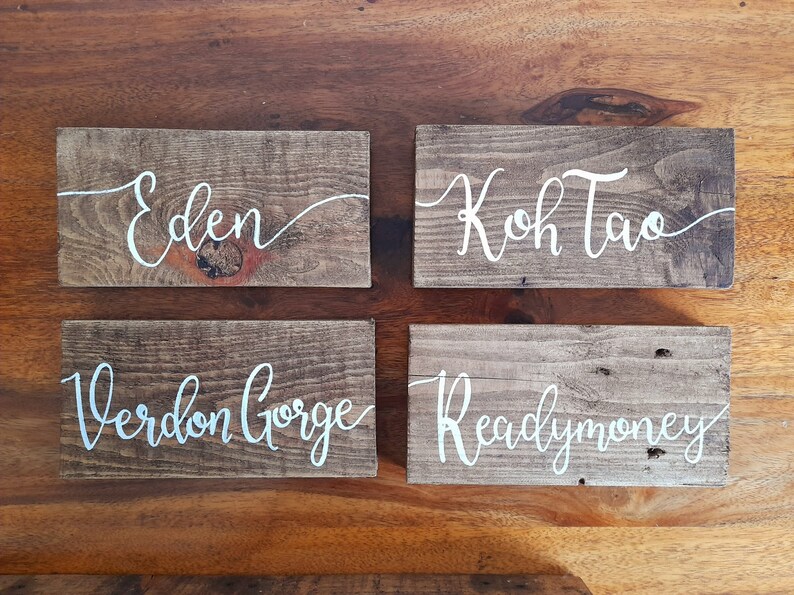 Eden
Koh Tao
Verdon Gorge
Readymoney